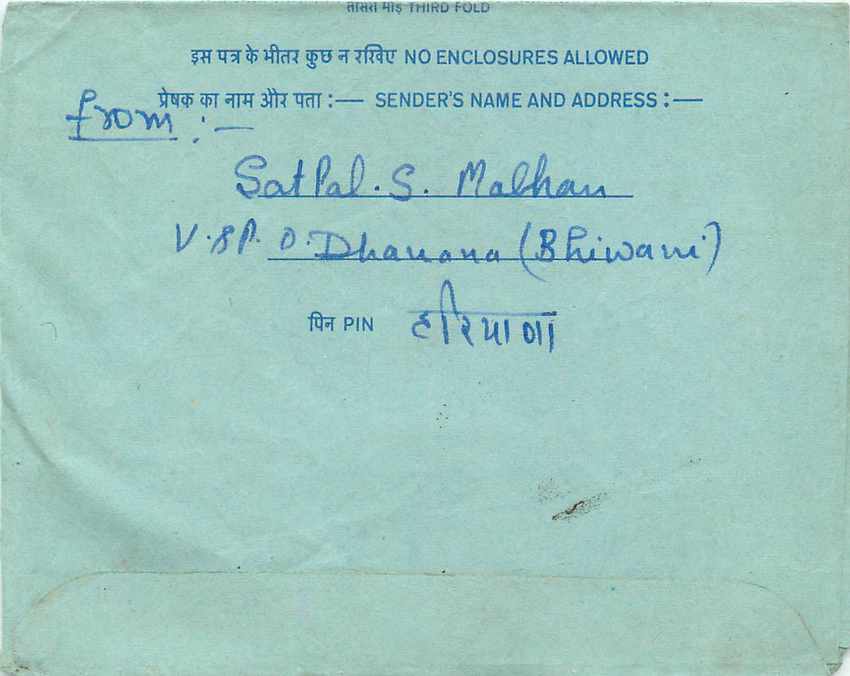 तीसरा मोड़ THIRD FOLD
इस पत्र के भीतर कुछ न रखिए NO ENCLOSURES ALLOWED
प्रेषक का नाम और पता :— SENDER'S NAME AND ADDRESS :—
from :—
SatPal. S. Malhan
V. & P. O. Dhanana (Bhiwani)
पिन PIN हरियाणा